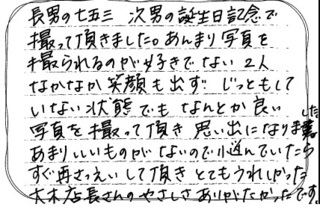 長男の七五三 次男の誕生日記念で
撮って頂きました。あんまり写真を
撮られるのが好きでない2人
なかなか笑顔も出ず じっとして
いない状態でも なんとか良い
写真を撮って頂き 思い出になりました
あまりいいものがないので小道んでいたら
すぐ再さつえいして頂き とてもうれしかった
大木店長さんのやさしさ ありがたかったです。